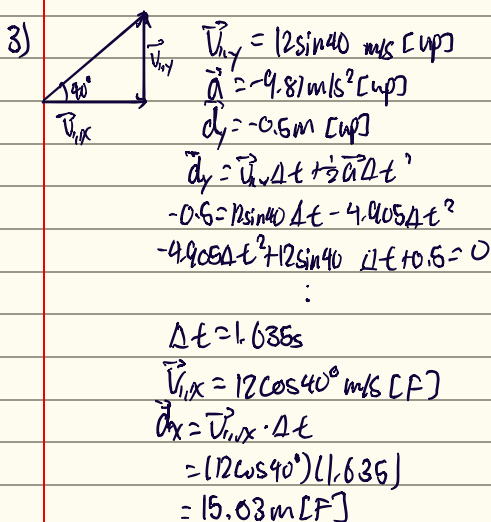 3)
40°
V⃗₁,y
V⃗₁,x
V⃗₁,y = 12sin40 m/s [up]
a⃗ = -9.81 m/s² [up]
d⃗y = -0.5m [up]
d⃗y = V⃗₁,yΔt + ½a⃗Δt²
-0.5 = 12sin40 Δt - 4.905Δt²
-4.905Δt² + 12sin40 Δt + 0.5 = 0
⋮
Δt = 1.635s
V⃗₁,x = 12cos40° m/s [F]
d⃗x = V⃗₁,x · Δt
= (12cos40°)(1.635)
= 15.03m [F]